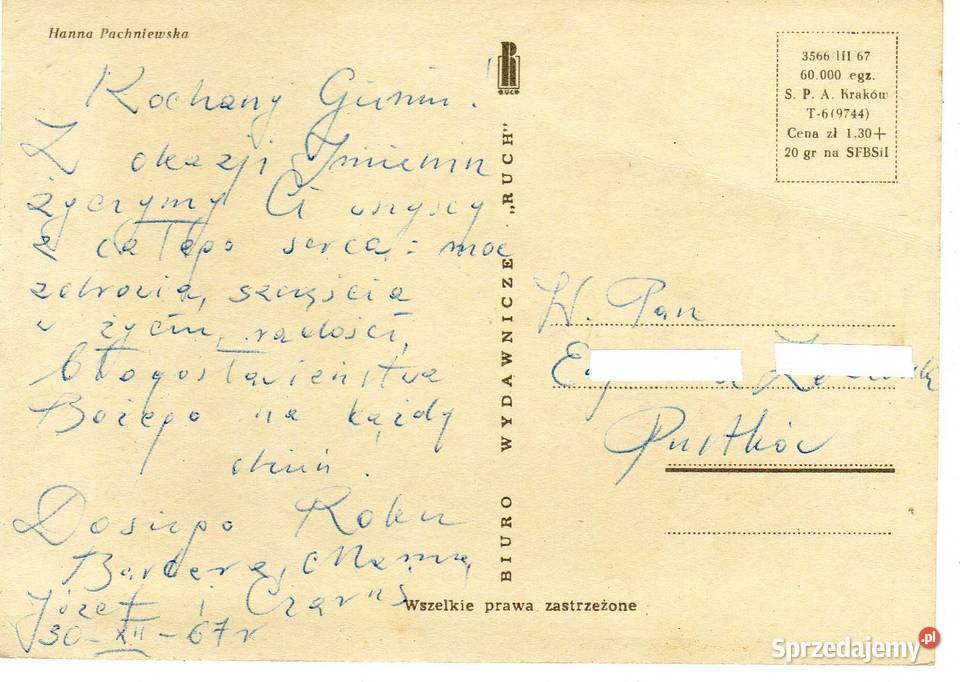 Hanna Pachniewska
Kochany Geniu!
Z okazji Imienin
życzymy Ci wszyscy
z całego serca: moc
zdrowia, szczęścia
w życiu, radości,
błogosławieństwa
Bożego na każdy
dzień.
Dosiego Roku
Barbara, Mama,
Józef i
30-XII-67r
RUCH
BIURO WYDAWNICZE „RUCH"
Wszelkie prawa zastrzeżone
3566/III/67
60.000 egz.
S. P. A. Kraków
T-6(9744)
Cena zł 1,30+
20 gr na SFBSiI
W. Pan
Pustków
Sprzedajemy.pl